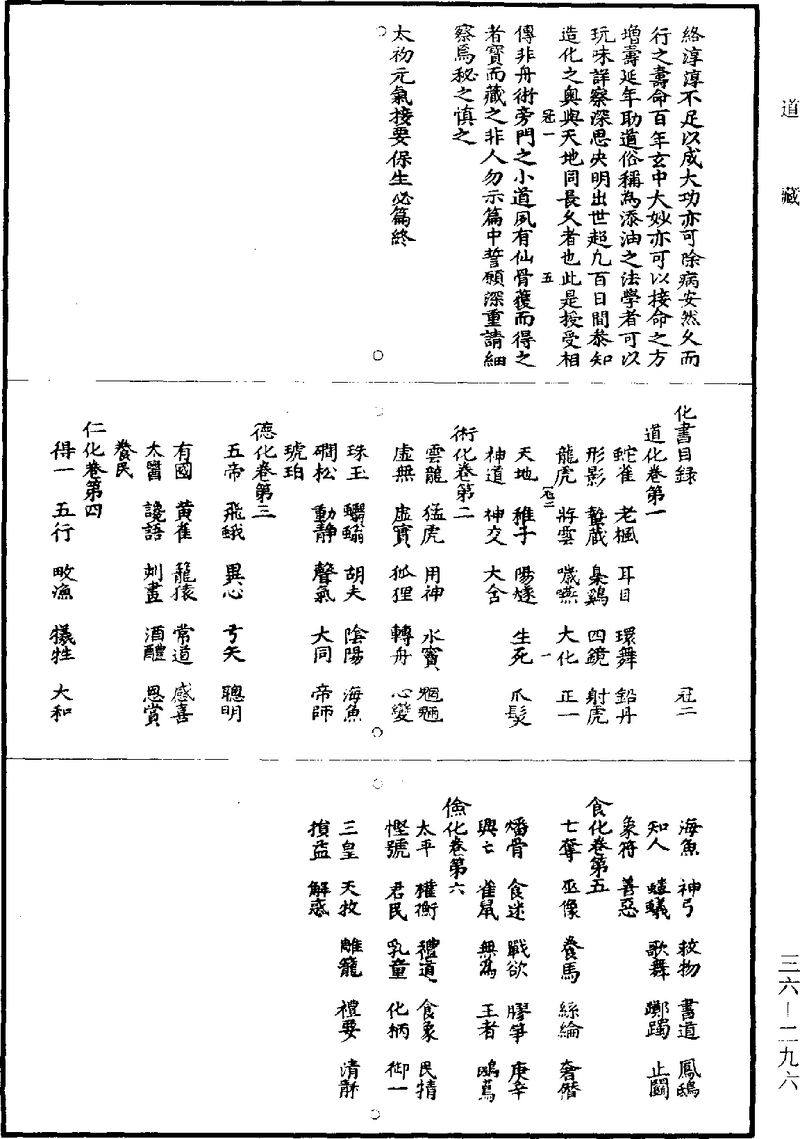 道藏
絡淳淳不足以成大功亦可除病安然久而
行之壽命百年玄中大妙亦可以接命之方
增壽延年助道俗稱為添油之法學者可以
玩味詳察深思央明出世超九百日間叅知
造化之奧與天地同長久者也此是授受相
冠一 五
傳非舟術旁門之小道夙有仙骨獲而得之
者寶而藏之非人勿示篇中誓願深重請細
察焉秘之慎之
太初元氣接要保生必篇終
化書目録 冠二
道化卷第一
蛇雀 老楓 耳目 環舞 鉛丹
形影 蟄藏 梟鷄 四鏡 射虎
龍虎 游雲 噦㗀 大化 正一
冠二 一
天地 稚子 陽燧 生死 爪髮
神道 神交 大含
術化卷第二
雲龍 猛虎 用神 水竇 魍魎
虛無 虛實 狐狸 轉舟 心變
珠玉 蠮螉 胡夫 陰陽 海魚
磵松 動靜 聲氣 大同 帝師
琥珀
德化卷第三
五帝 飛蛾 異心 弓矢 聰明
有國 黃雀 籠猿 常道 感喜
太醫 讒語 刺畫 酒醴 恩賞
養民
仁化卷第四
得一 五行 畋漁 犧牲 大和
海魚 神弓 救物 書道 鳳鴟
知人 螻蟻 歌舞 躑躅 止鬪
象符 善惡
食化卷第五
七奪 巫像 養馬 絲綸 奢僭
燔骨 食迷 戰欲 膠竿 庚辛
興亡 雀鼠 無為 王者 鴟鳶
儉化卷第六
太平 權衡 禮道 食象 民情
慳號 君民 乳童 化柄 御一
三皇 天牧 雕籠 禮要 清靜
損益 解惑
三六—二九六